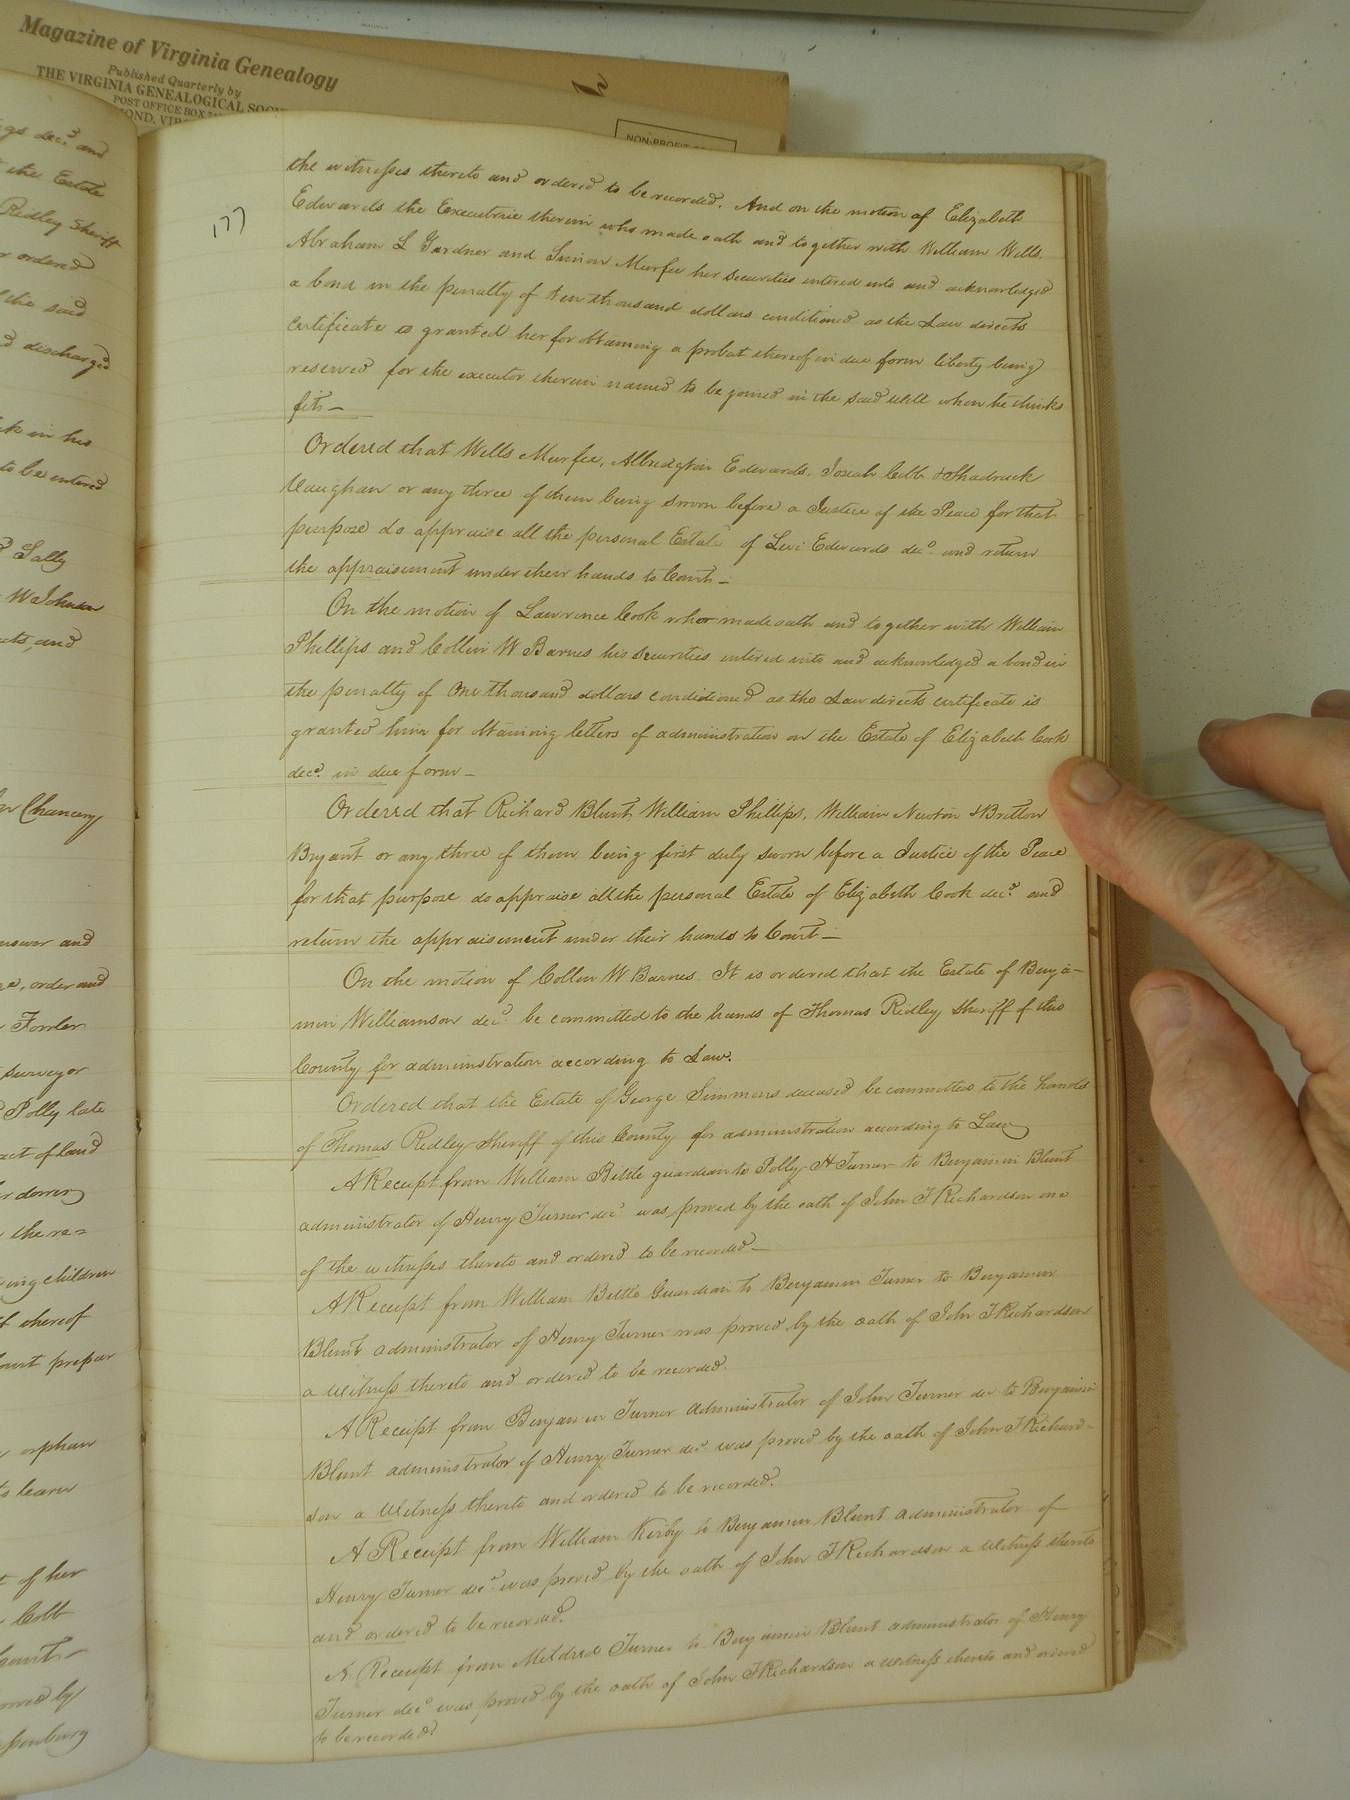 Magazine of Virginia Genealogy
Published Quarterly by
THE VIRGINIA GENEALOGICAL SOCI
POST OFFICE BOX
OND, VIR
NON-PROFIT
gs decd. and
the Estate
Ridley Sheriff
ordered
the said
discharged
in his
to be entered
Sally
W Johnson
and
Chancery
answer and
order and
Fowler
surveyor
Polly late
act of land
dower
the re=
ing children
thereof
prepar
orphan
to learn
of her
Cobb
Court
by
177
the witnesses thereto and ordered to be recorded. And on the motion of Elizabeth
Edwards the Executrix therein who made oath and together with William Wells,
Abraham L Gardner and Simon Murfee her securities entered into and acknowledged
a bond in the penalty of ten thousand dollars conditioned as the Law directs
certificate is granted her for obtaining a probat thereof in due form liberty being
reserved for the executor therein named to be joined in the said Will when he thinks
fit —
Ordered that Wells Murfee, Albridgton Edwards, Josiah Cobb & Shadrack
Vaughan or any three of them being sworn before a Justice of the Peace for that
purpose do appraise all the personal Estate of Levi Edwards decd. and return
the appraisement under their hands to Court —
On the motion of Lawrence Cook who made oath and together with William
Phillips and Collin W Barnes his securities entered into and acknowledged a bond in
the penalty of One thousand dollars conditioned as the Law directs certificate is
granted him for obtaining letters of administration on the Estate of Elizabeth Cook
decd. in due form —
Ordered that Richard Blunt William Phillips, William Newton & Britton
Bryant or any three of them being first duly sworn before a Justice of the Peace
for that purpose do appraise all the personal Estate of Elizabeth Cook decd. and
return the appraisement under their hands to Court —
On the motion of Collin W Barnes It is ordered that the Estate of Benja-
min Williamson decd. be committed to the hands of Thomas Ridley Sheriff of this
County for administration according to Law.
Ordered that the Estate of George Simmons deceased be committed to the hands
of Thomas Ridley Sheriff of this County for administration according to Law
A Receipt from William Bittle guardian to Polly H Turner to Benjamin Blunt
administrator of Henry Turner decd. was proved by the oath of John T Richardson one
of the witnesses thereto and ordered to be recorded —
A Receipt from William Bittle Guardian to Benjamin Turner to Benjamin
Blunt administrator of Henry Turner was proved by the oath of John T Richardson
a Witness thereto and ordered to be recorded.
A Receipt from Benjamin Turner Administrator of John Turner dec to Benjamin
Blunt administrator of Henry Turner decd. was proved by the oath of John T Richard-
son a Witness thereto and ordered to be recorded.
A Receipt from William Kirby to Benjamin Blunt administrator of
Henry Turner decd. was proved by the oath of John T Richardson a Witness thereto
and ordered to be recorded.
A Receipt from Mildred Turner to Benjamin Blunt administrator of Henry
Turner decd. was proved by the oath of John T Richardson a Witness thereto and ordered
to be recorded.